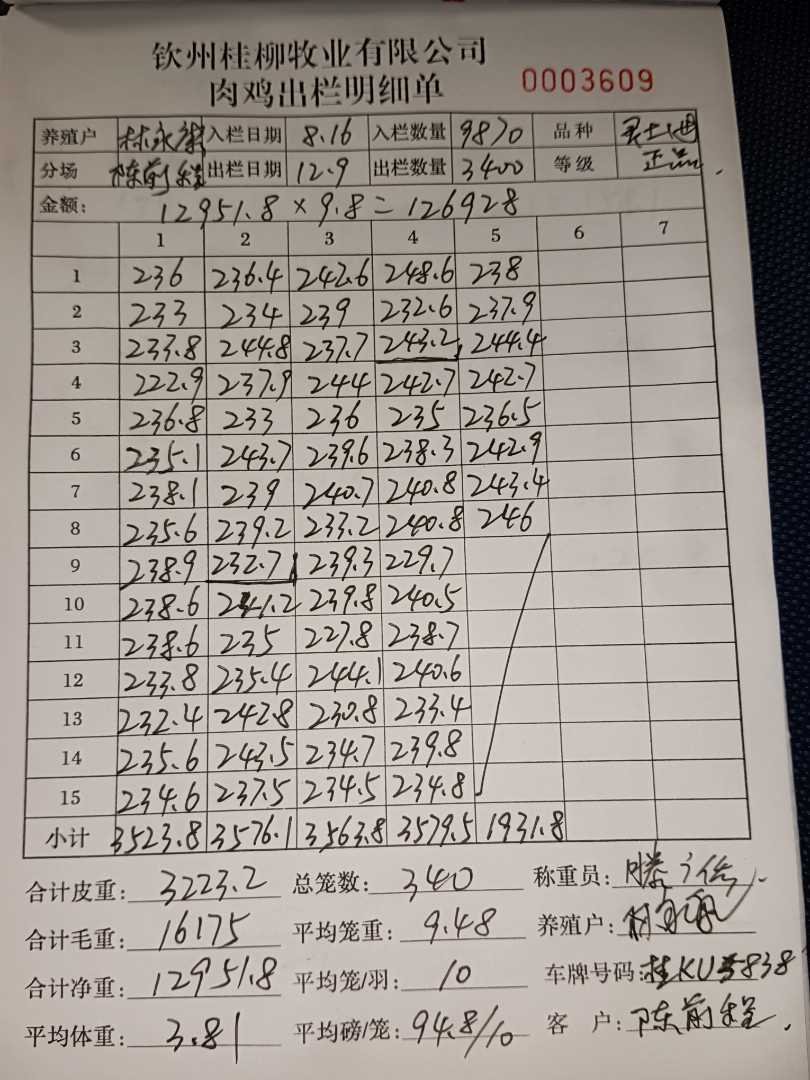 钦州桂柳牧业有限公司
肉鸡出栏明细单 0003609
养殖户 林永 入栏日期 8.16 入栏数量 9870 品种
分场 陈前程 出栏日期 12.9 出栏数量 3400 等级 正品
金额: 12951.8 × 9.8 = 126928
1 2 3 4 5 6 7
1 236 236.4 242.6 248.6 238
2 233 234 239 232.6 237.9
3 233.8 244.8 237.7 243.2 244.4
4 222.9 237.9 244 242.7 242.7
5 236.8 233 236 235 236.5
6 235.1 243.7 239.6 238.3 242.9
7 238.1 239 240.7 240.8 243.4
8 235.6 239.2 233.2 240.8 246
9 238.9 232.7 239.3 229.7
10 238.6 241.2 239.8 240.5
11 238.6 235 227.8 238.7
12 233.8 235.4 244.1 240.6
13 232.4 242.8 230.8 233.4
14 235.6 243.5 234.7 239.8
15 234.6 237.5 234.5 234.8
小计 3523.8 3576.1 3563.8 3579.5 1931.8
合计皮重: 3223.2 总笼数: 340 称重员:
合计毛重: 16175 平均笼重: 9.48 养殖户:
合计净重: 12951.8 平均笼/羽: 10 车牌号码: 桂KU5838
平均体重: 3.81 平均磅/笼: 94.8/10 客户: 陈前程